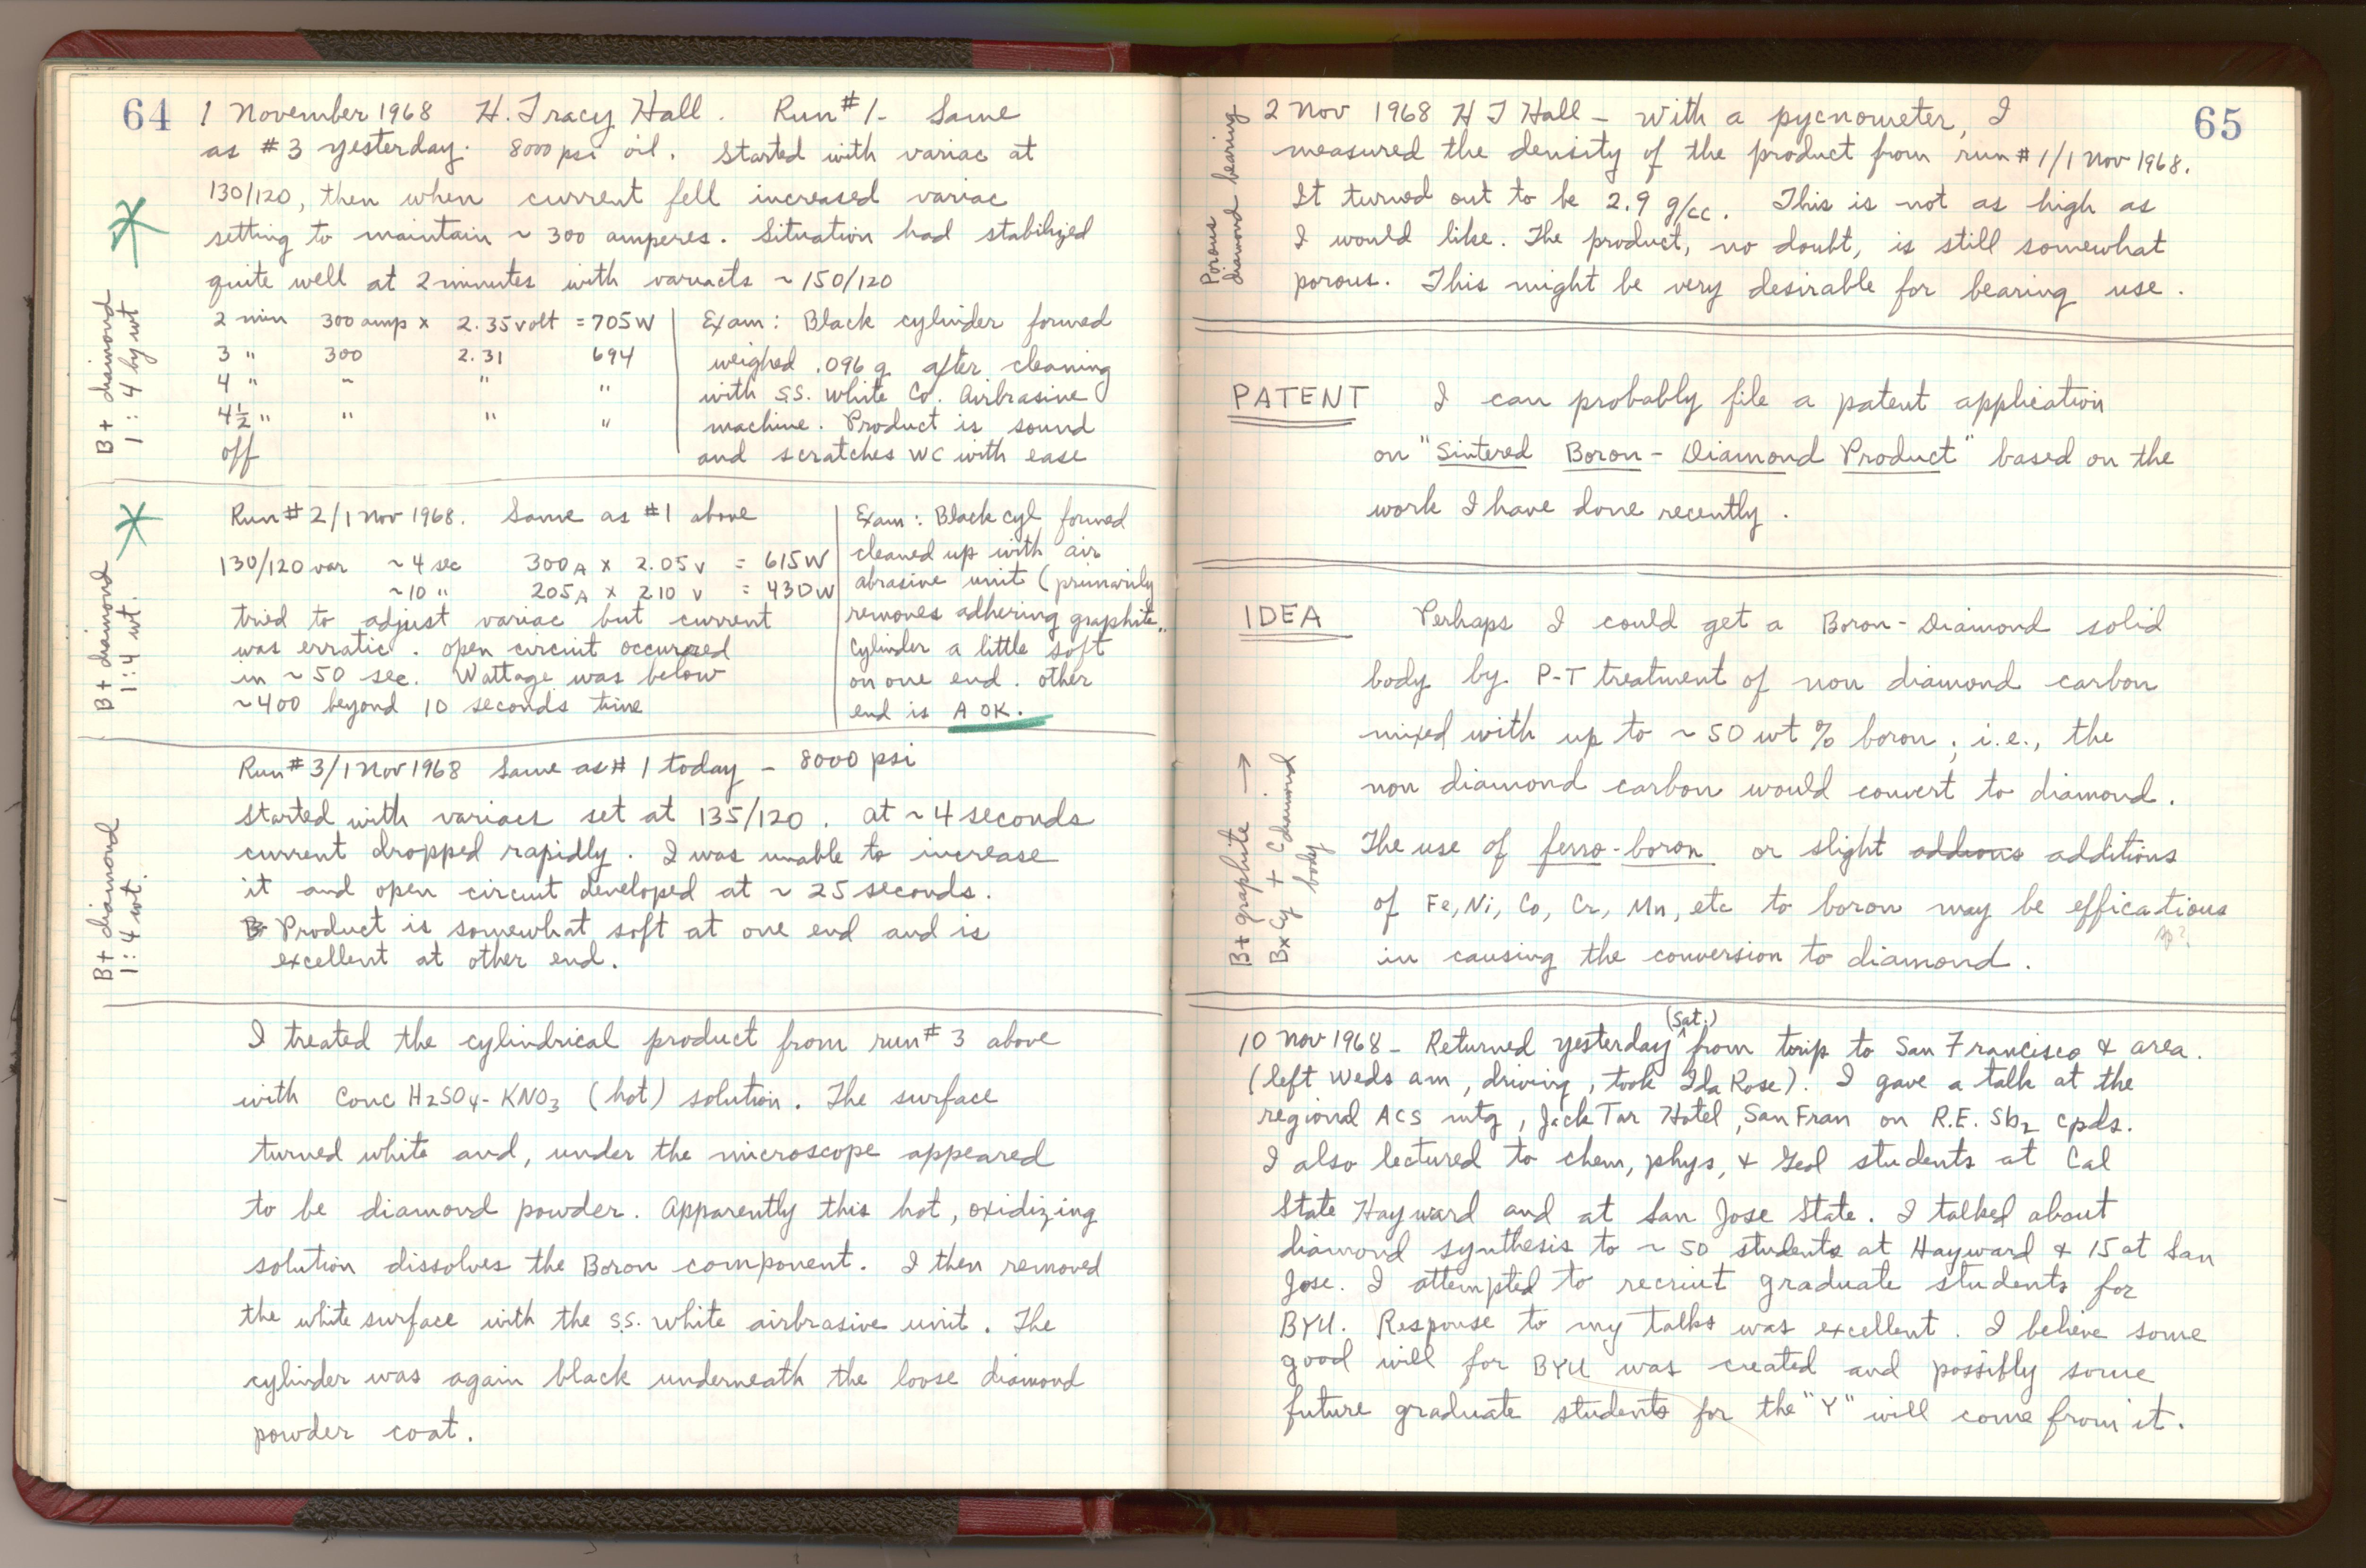 64
1 November 1968 H. Tracy Hall. Run #1- Same
as #3 yesterday. 8000 psi oil. Started with variac at
130/120, then when current fell increased variac
setting to maintain ~ 300 amperes. Situation had stabilized
quite well at 2 minutes with variacts ~ 150/120
B + diamond
1 : 4 by wt
2 min 300 amp x 2.35 volt = 705 W
3 " 300 2.31 694
4 " " " "
4 1/2 " " " "
off
Exam: Black cylinder formed
weighed .096 g after cleaning
with S.S. White Co. Airbrasive
machine. Product is sound
and scratches WC with ease
B + diamond
1:4 wt.
Run #2/1 Nov 1968. Same as #1 above
130/120 var ~4 sec 300A x 2.05 v = 615W
~10 " 205A x 2.10 v = 430W
tried to adjust variac but current
was erratic. open circuit occurred
in ~50 sec. Wattage was below
~400 beyond 10 seconds time
Exam: Black cyl formed
cleaned up with air
abrasive unit (primarily
removes adhering graphite"
Cylinder a little soft
on one end. other
end is A OK.
B + diamond
1:4 wt.
Run #3/1 Nov 1968 Same as # 1 today - 8000 psi
Started with variacs set at 135/120. at ~ 4 seconds
current dropped rapidly. I was unable to increase
it and open circuit developed at ~ 25 seconds.
B Product is somewhat soft at one end and is
excellent at other end.
I treated the cylindrical product from run #3 above
with Conc H2SO4- KNO3 (hot) solution. The surface
turned white and, under the microscope appeared
to be diamond powder. Apparently this hot, oxidizing
solution dissolves the Boron component. I then removed
the white surface with the S.S. White airbrasive unit. The
cylinder was again black underneath the loose diamond
powder coat.
65
Porous
diamond bearing
2 Nov 1968 H T Hall - With a pycnometer, I
measured the density of the product from run #1/1 Nov 1968.
It turned out to be 2.9 g/cc. This is not as high as
I would like. The product, no doubt, is still somewhat
porous. This might be very desirable for bearing use.
PATENT I can probably file a patent application
on "Sintered Boron - Diamond Product" based on the
work I have done recently.
IDEA Perhaps I could get a Boron-Diamond solid
body by P-T treatment of non diamond carbon
mixed with up to ~ 50 wt % boron; i.e., the
non diamond carbon would convert to diamond.
B + graphite →
BxCy + Cdiamond
body
The use of ferro-boron or slight addions additions
of Fe, Ni, Co, Cr, Mn, etc to boron may be efficatious
sp?
in causing the conversion to diamond.
(Sat.)
10 Nov 1968 - Returned yesterday ^ from torip to San Francisco & area.
(left Weds am, driving, took Ida Rose). I gave a talk at the
regional ACS mtg, Jack Tar Hotel, San Fran on R.E. Sb2 cpds.
I also lectured to chem, phys, & Geol students at Cal
State Hayward and at San Jose State. I talked about
diamond synthesis to ~ 50 students at Hayward & 15 at San
Jose. I attempted to recruit graduate students for
BYU. Response to my talks was excellent. I believe some
good will for BYU was created and possibly some
future graduate students for the "Y" will come from it.